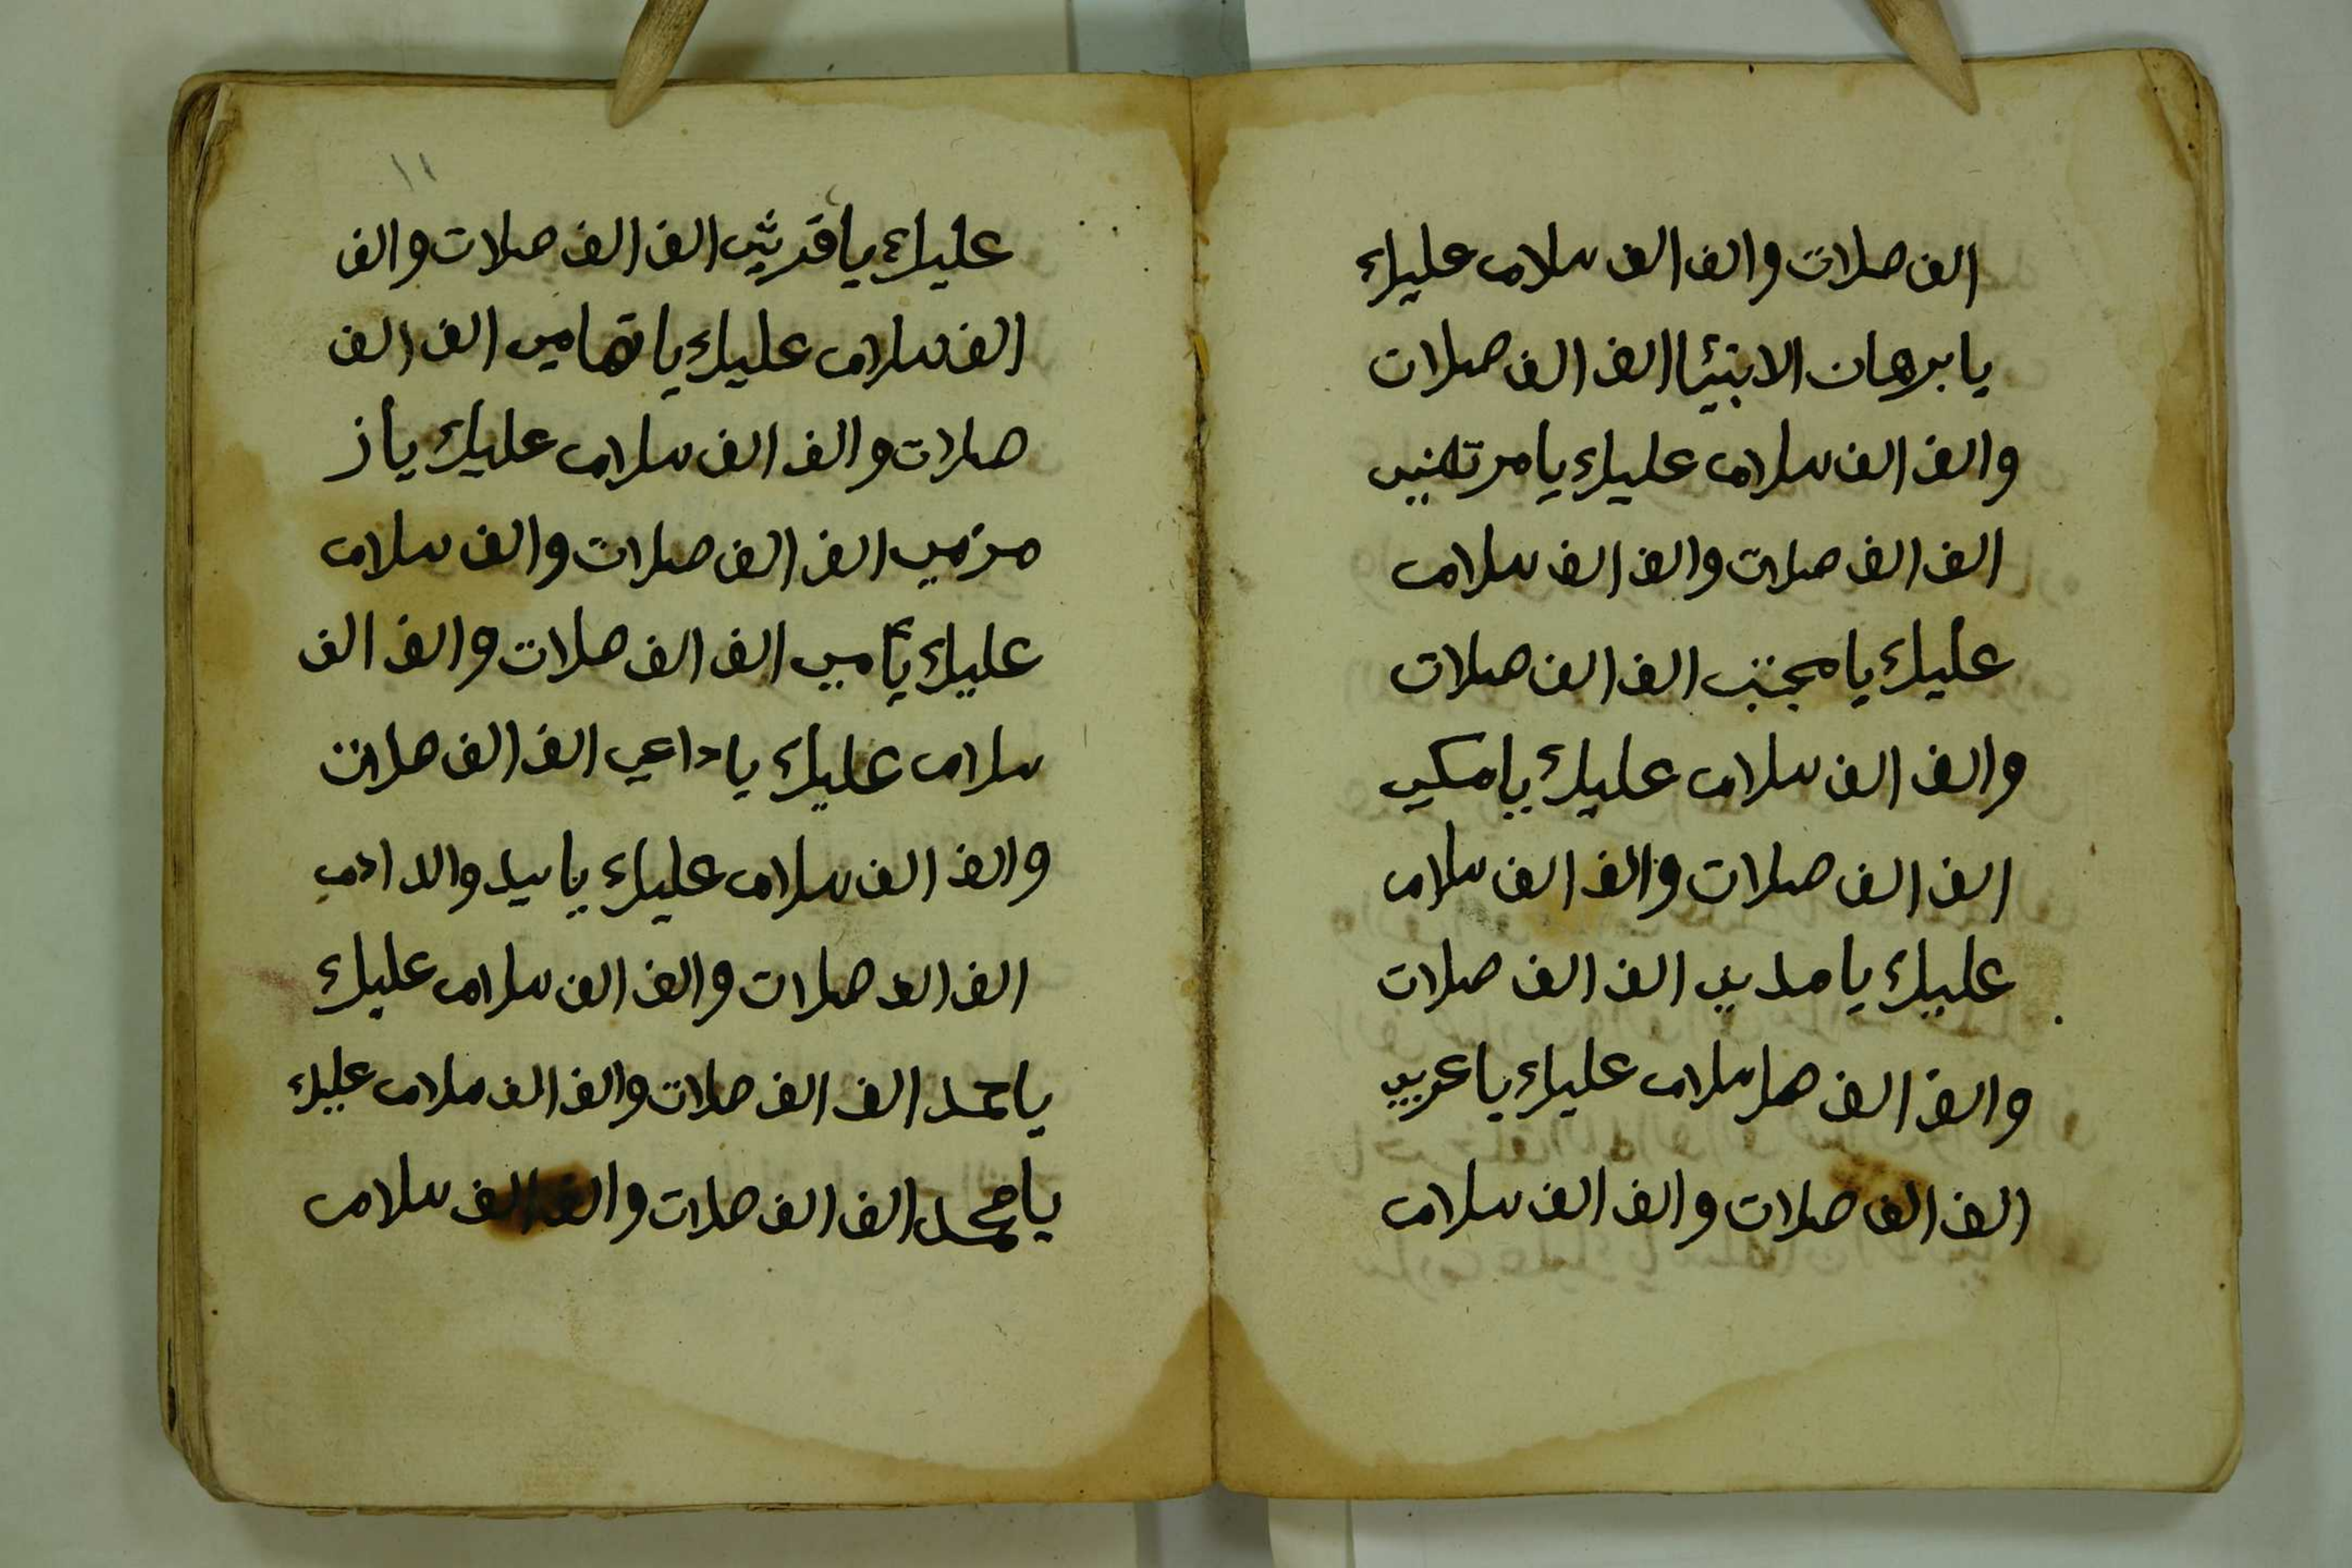 الف صلات والف الف سلام عليك
يا برهان الانبيا الف الف صلات
والف الف سلام عليك يا مرتضي
الف الف صلات والف الف سلام
عليك يا مجتبي الف الف صلات
والف الف سلام عليك يا مكي
الف الف صلات والف الف سلام
عليك يا مديني الف الف صلات
والف الف صلا سلام عليك يا عربي
الف الف صلات والف الف سلام
١١
عليك يا قريشي الف الف صلات والف
الف سلام عليك يا تهامي الف الف
صلات والف الف سلام عليك يا ز
مزمي الف الف صلات والف سلام
عليك يا امي الف الف صلات والف الف
سلام عليك يا داعي الف الف صلات
والف الف سلام عليك يا سيد والد ادم
الف الف صلات والف الف سلام عليك
يا حمد الف الف صلات والف الف سلام عليك
يا محمد الف الف صلات والف الف سلام